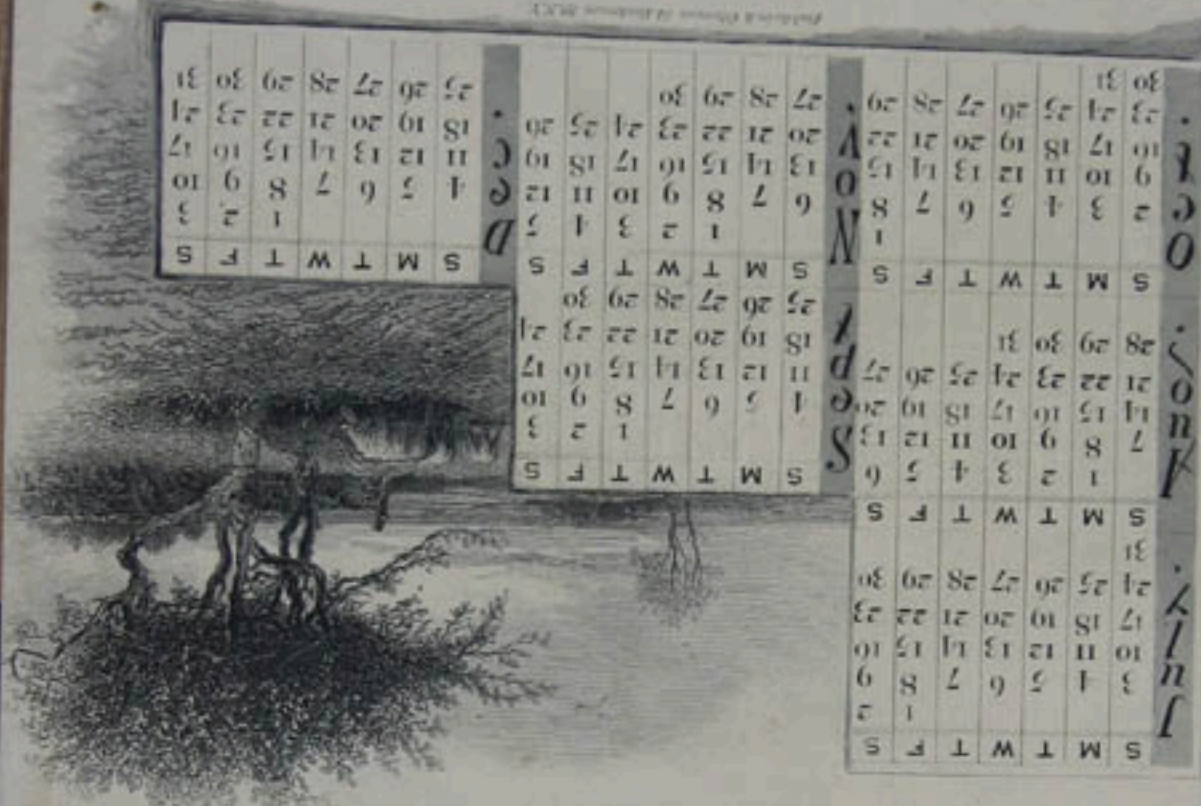 July.
S M T W T F S
1 2
3 4 5 6 7 8 9
10 11 12 13 14 15 16
17 18 19 20 21 22 23
24 25 26 27 28 29 30
31
Aug.
S M T W T F S
1 2 3 4 5 6
7 8 9 10 11 12 13
14 15 16 17 18 19 20
21 22 23 24 25 26 27
28 29 30 31
Sept
S M T W T F S
1 2 3
4 5 6 7 8 9 10
11 12 13 14 15 16 17
18 19 20 21 22 23 24
25 26 27 28 29 30
Oct.
S M T W T F S
1
2 3 4 5 6 7 8
9 10 11 12 13 14 15
16 17 18 19 20 21 22
23 24 25 26 27 28 29
30 31
Nov.
S M T W T F S
1 2 3 4 5
6 7 8 9 10 11 12
13 14 15 16 17 18 19
20 21 22 23 24 25 26
27 28 29 30
Dec.
S M T W T F S
1 2 3
4 5 6 7 8 9 10
11 12 13 14 15 16 17
18 19 20 21 22 23 24
25 26 27 28 29 30 31